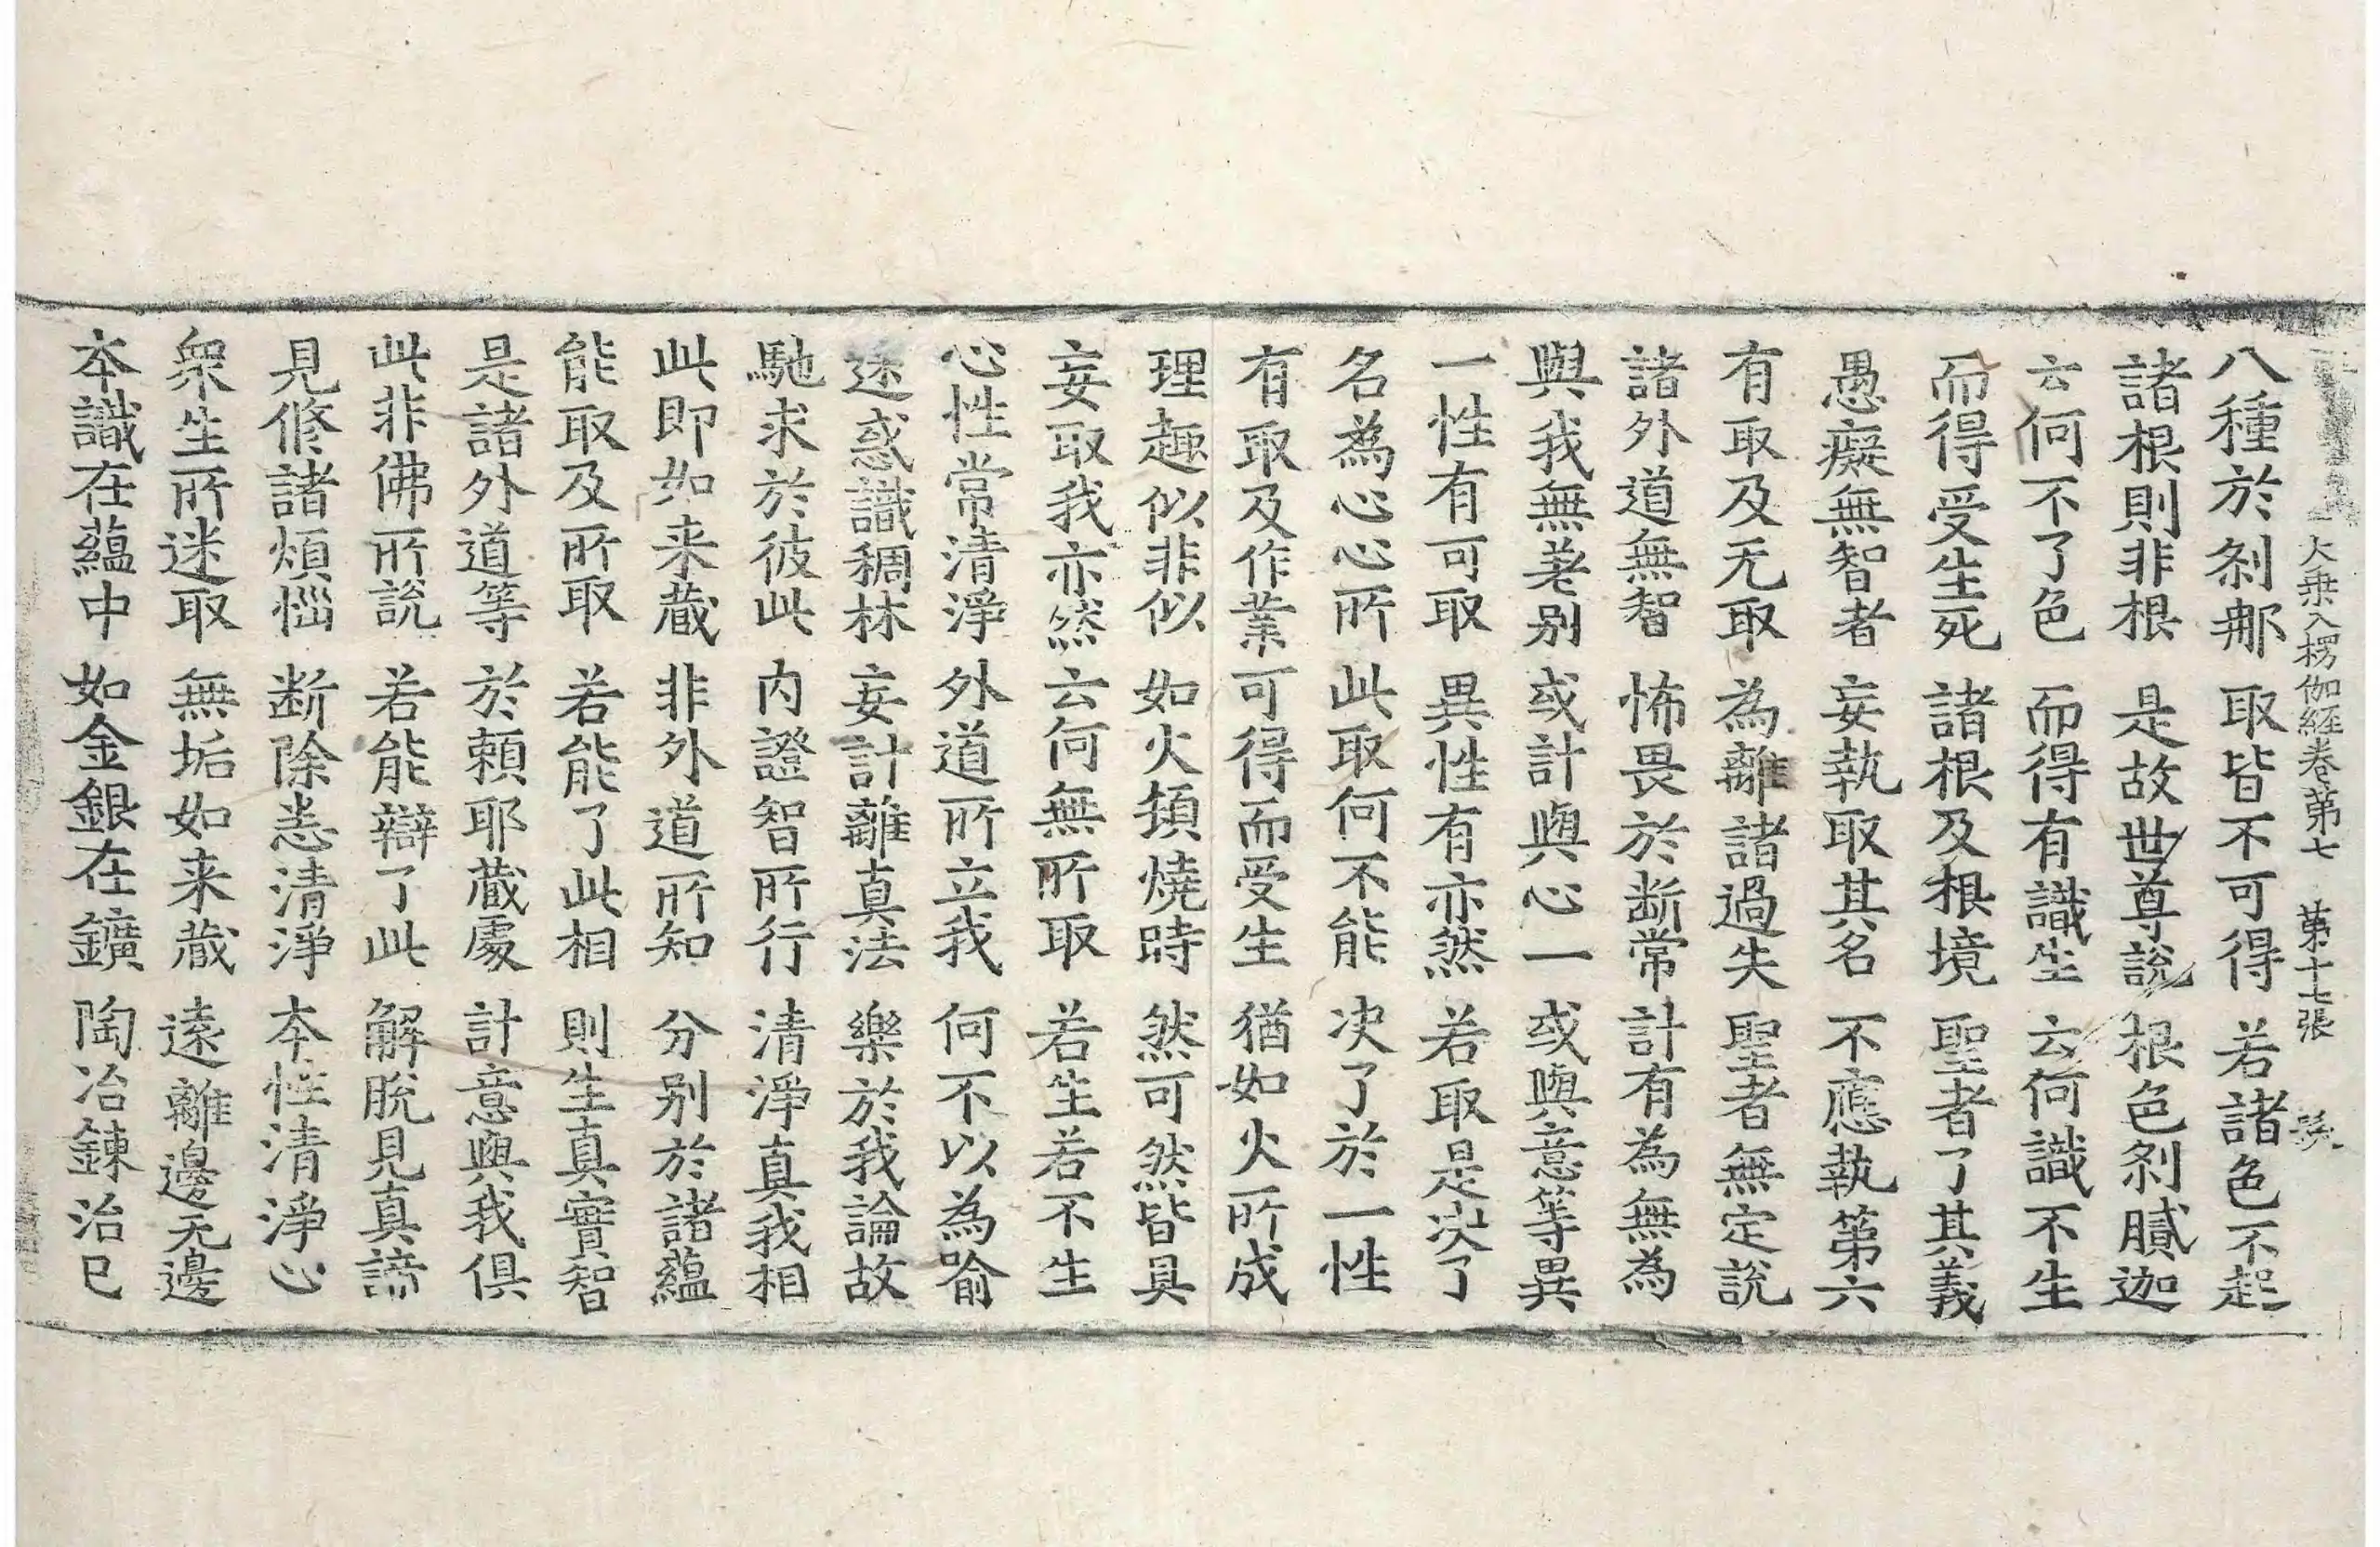 大乗入楞伽経巻第七 第十七張
八種於剎那 取皆不可得 若諸色不起
諸根則非根 是故世尊說 根色剎膩迦
云何不了色 而得有識生 云何識不生
而得受生死 諸根及根境 聖者了其義
愚癡無智者 妄執取其名 不應執第六
有取及无取 為離諸過失 聖者無定說
諸外道無智 怖畏於断常 計有為無為
與我無差别 或計與心一 或與意等異
一性有可取 異性有亦然 若取是决了
名為心心所 此取何不能 决了於一性
有取及作業 可得而受生 猶如火所成
理趣似非似 如火頓燒時 然可然皆具
妄取我亦然 云何無所取 若生若不生
心性常清淨 外道所立我 何不以為喻
迷惑識稠林 妄計離真法 樂於我論故
馳求於彼此 内證智所行 清淨真我相
此即如来蔵 非外道所知 分别於諸蘊
能取及所取 若能了此相 則生真實智
是諸外道等 於頼耶蔵處 計意與我俱
此非佛所說 若能辯了此 解脫見真諦
見修諸煩惱 断除悉清淨 本性清淨心
衆生所迷取 無垢如来蔵 遠離邊无邊
本識在蘊中 如金銀在鑛 陶冶鍊治已